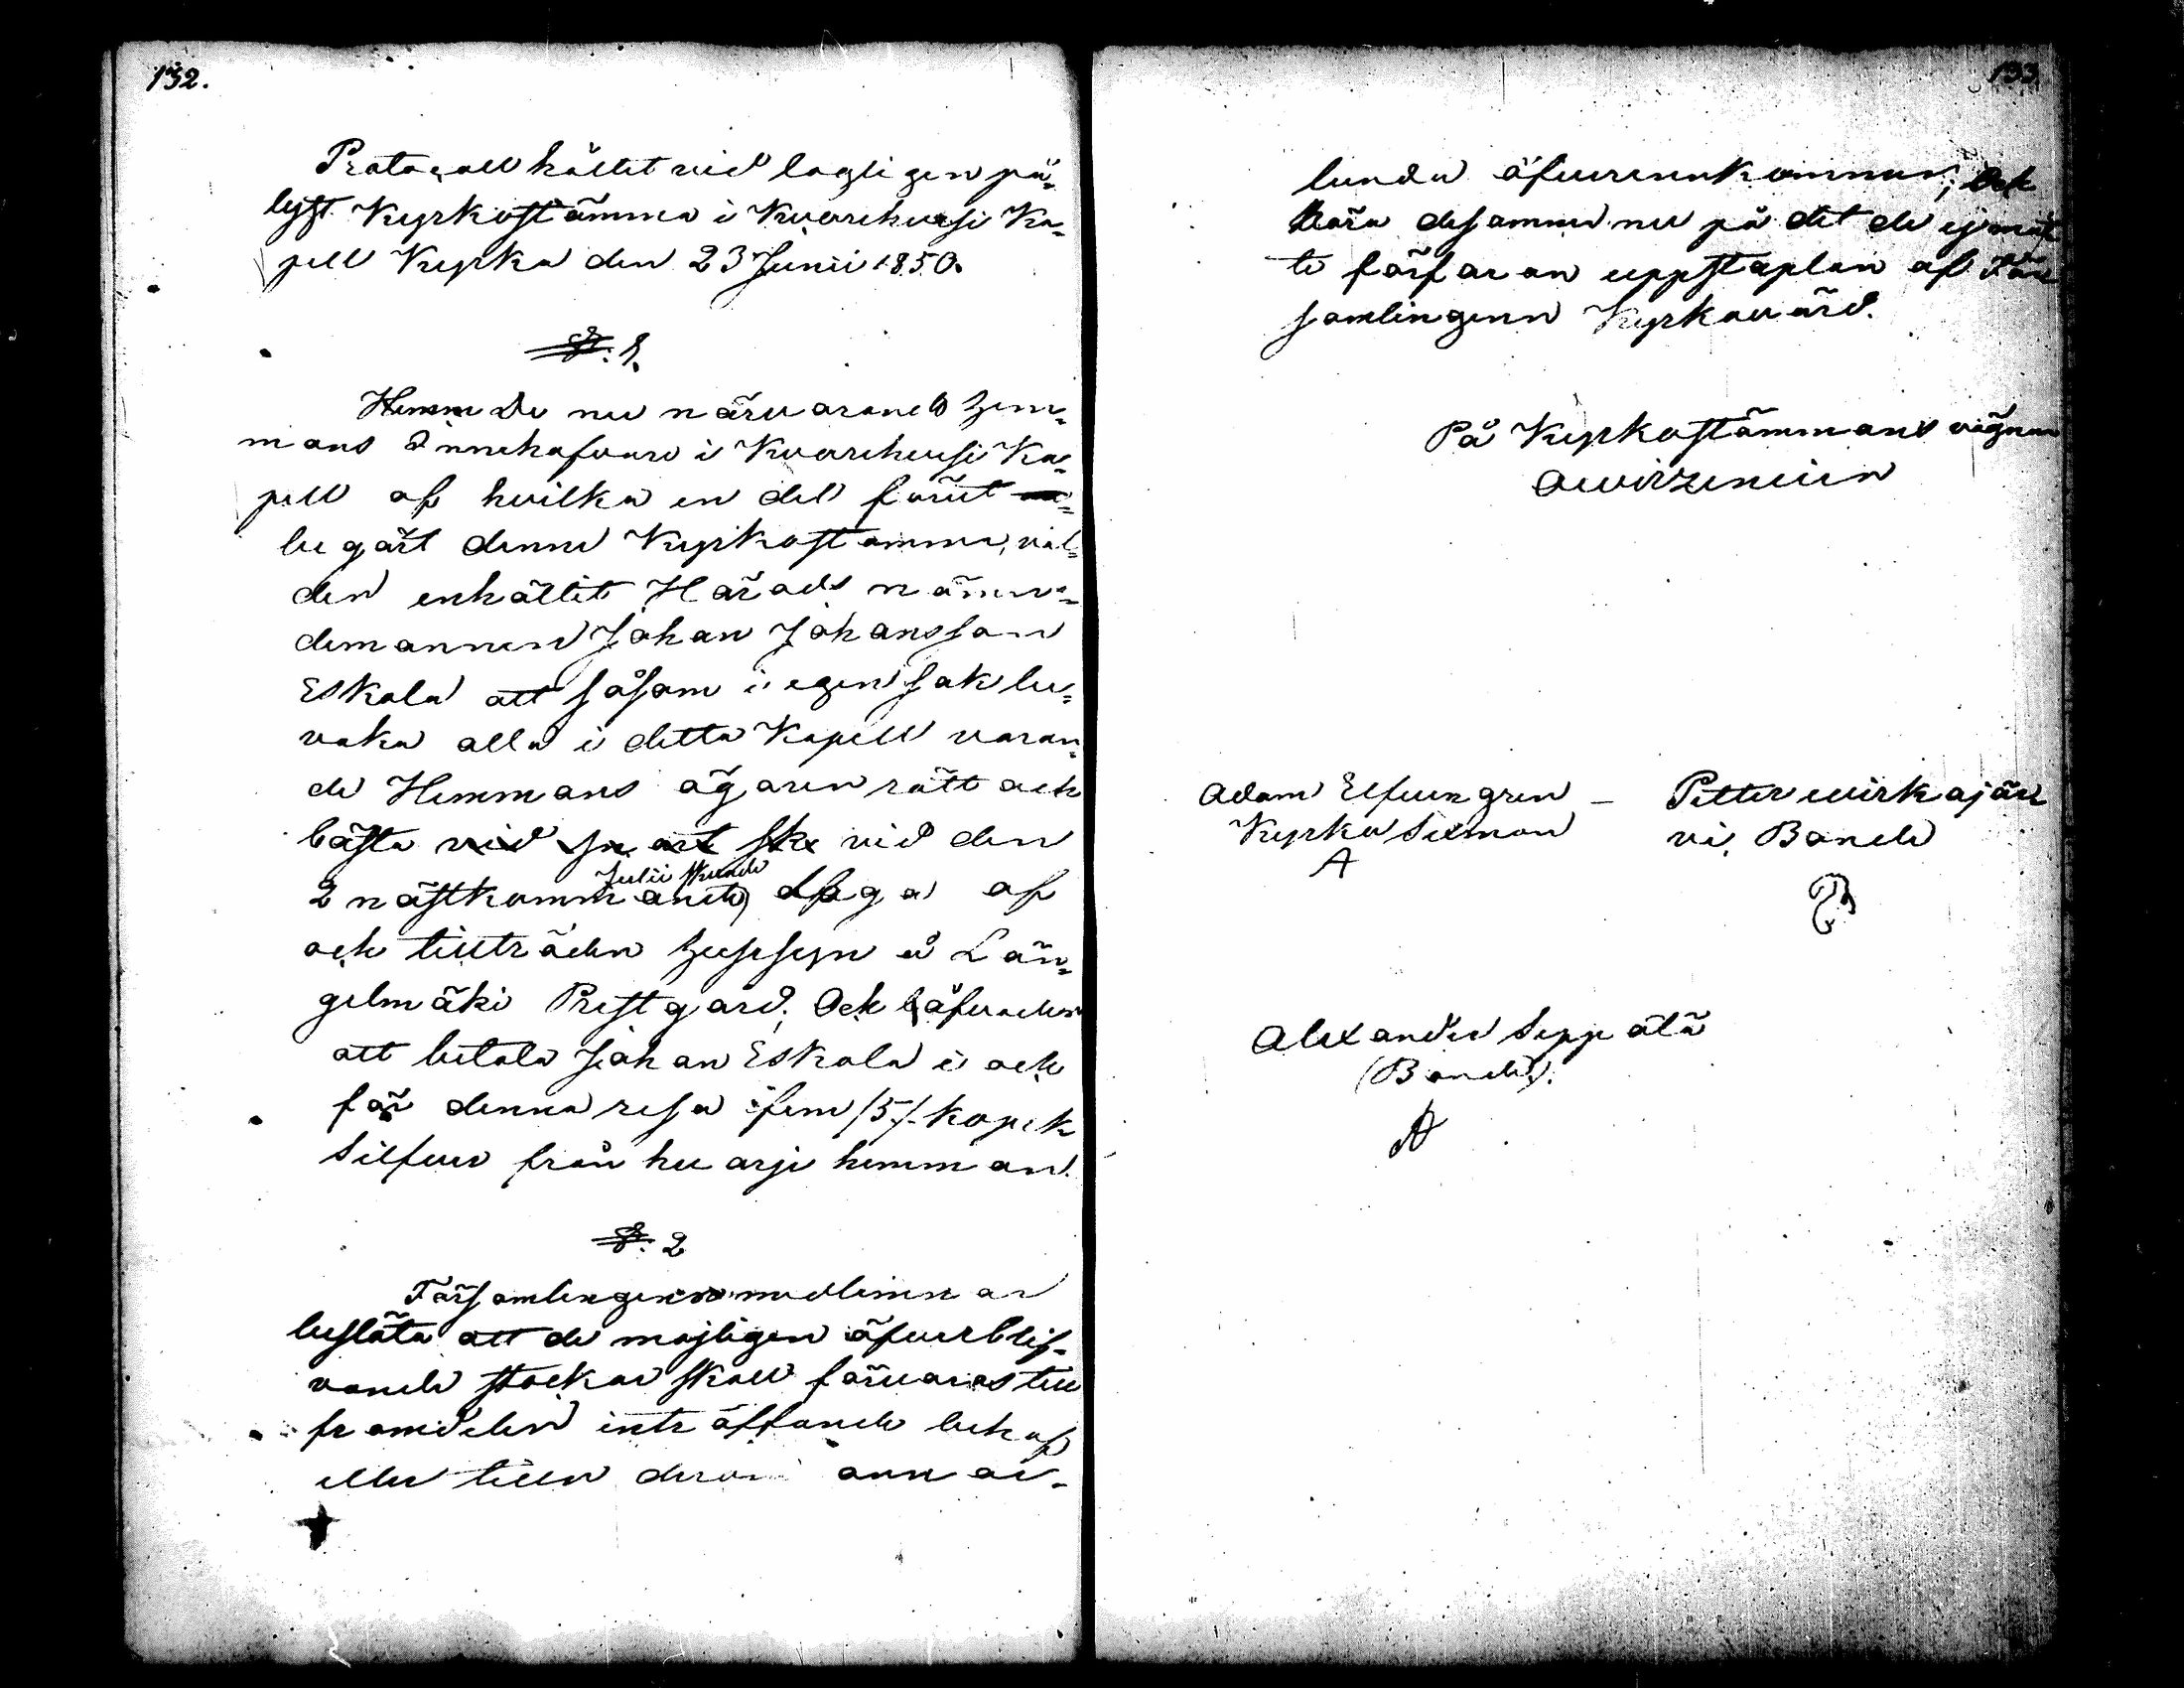 132.
Protocoll hållit vid lagligen på-
lyst Kyrkostämma i Kuorehvesi Ka-
pell Kyrka den 23 Junii 1850.
§. 1.
De nu närvarande hem-
mans Innehafvare i Kuorehvesi Ka-
pell af hvilka en del förut
begärt denna Kyrkostämma, val-
den enhällit Härads nämn-
demannen Johan Johansson
Eskola att såsom i egen sak be-
vaka alla i detta Kapell varan-
de Hemmans ägaren rätt och
bästa vid den
Julii skunde
2 nästkommande dga af
och tillträden husesyn å Län-
gelmäki Prestgård; Och låfvaden
att betala Johan Eskola i och
för denna resa fem /5/ kopek
Silfver från hvarje hemman.
§. 2
Församlingens medlimmar
beslöto att de mojligen äfverblif-
vande stockar skall förvaras till
framdelen inträffande behof
eller tillen deröm annor-
133
lunda öfverenkommer; Och
desamma nu på det de ej mått
te förfaran uppstaplan af För
samlingenn Kyrkovärd.
På Kyrkostämmans vägnar
A Wirzenius
Adam Elfvengren –
Kyrko Sexman
A
Petter Wirkajär
vi, Bonde
Alexander Seppälä
(Bonde).
A